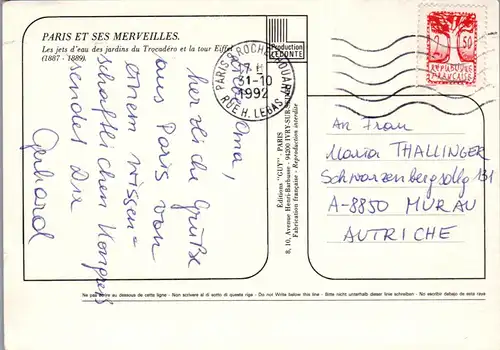 PARIS ET SES MERVEILLES.
Les jets d'eau des jardins du Trocadéro et la tour Eiffel
(1887 - 1889).
Production
LECONTE
PARIS
17 H
31-10
1992
RUE H. LEGAS
2,50
REPUBLIQUE
FRANÇAISE
Liebe Oma,
herzliche Grüße
aus Paris von
einem wissen-
schaftlichem Kongress
sendet Dir
Gerhard
Editions "GUY" - PARIS
8, 10, Avenue Henri-Barbusse - 94200 IVRY-SUR-SEINE
Fabrication française - Reproduction interdite
An Frau
Maria THALLINGER
Schwarzenbergsdlg 131
A-8850 MURAU
AUTRICHE
Ne pas écrire au dessous de cette ligne - Non scrivere al di sotto di questa riga - Do not Write below this line - Bitte nicht unterhalb dieser linie schreiben - No escribir debajo de esta raya